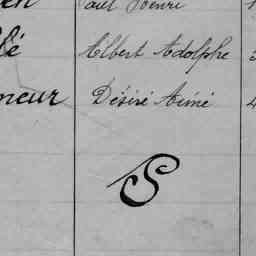 Paul Henri
lé Albert Adolphe
neur Désiré Aimé 4
S